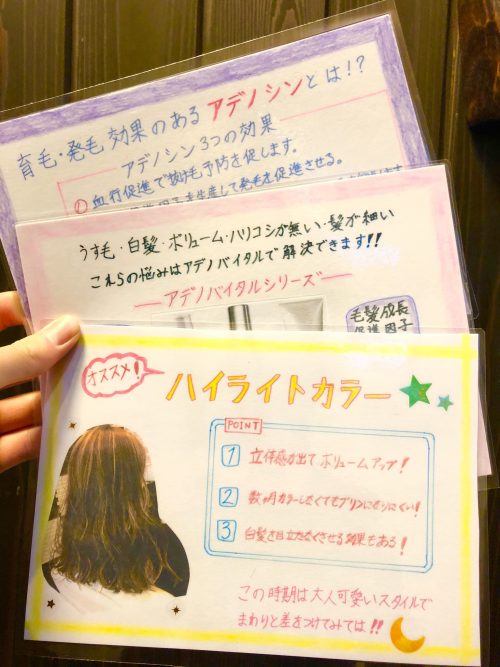 育毛・発毛効果のあるアデノシンとは!?
アデノシン3つの効果
① 血行促進で抜け毛予防を促します。
生産して発毛を促進させる。
うす毛・白髪・ボリューム・ハリコシが無い・髪が細い
これらの悩みはアデノバイタルで解決できます!!
アデノバイタルシリーズ
毛髪成長
促進因子
オススメ!
ハイライトカラー
POINT
1 立体感が出てボリュームアップ!
2 数ヶ月カラーしなくてもプリンになりにくい!
3 白髪を目立たなくさせる効果もある!
この時期は大人可愛いスタイルで
まわりと差をつけてみては!!